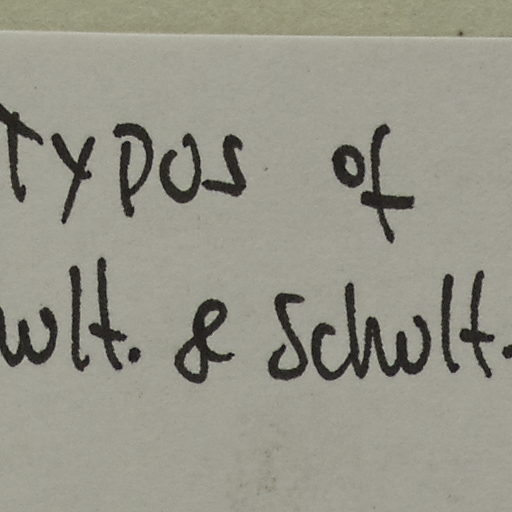 Typos of
ult. & Schult.